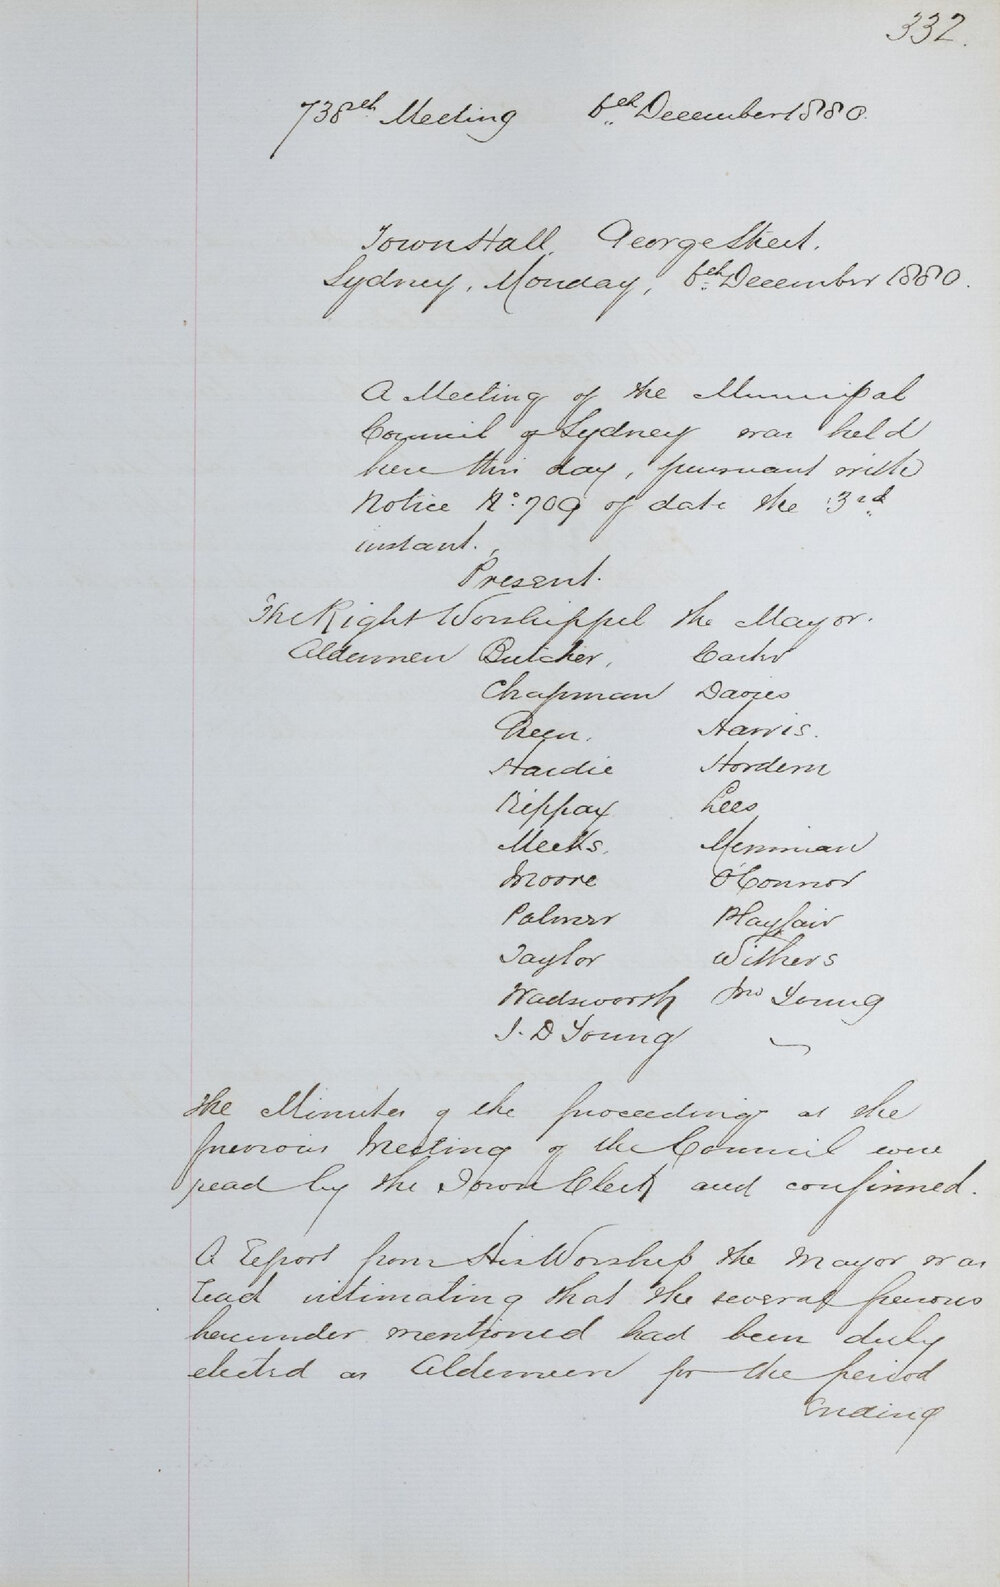 332.
738th Meeting 6th December 1880.
Town Hall, George Street.
Sydney, Monday, 6th December 1880.
A Meeting of the Municipal
Council of Sydney was held
here this day, pursuant with
Notice No. 709 of date the 3rd
instant.
Present.
The Right Worshipful the Mayor.
Aldermen Butcher, Carter
Chapman Davies
Green. Harris.
Hardie Hordern
Kippax Lees
Meeks. Merriman
Moore O'Connor
Palmer Playfair
Taylor Withers
Wadsworth Jno Young
J. D Young
The Minutes of the proceedings at the
previous Meeting of the Council were
read by the Town Clerk and confirmed.
A Report from His Worship the Mayor was
read intimating that the several persons
hereunder mentioned had been duly
elected as Aldermen for the period
ending